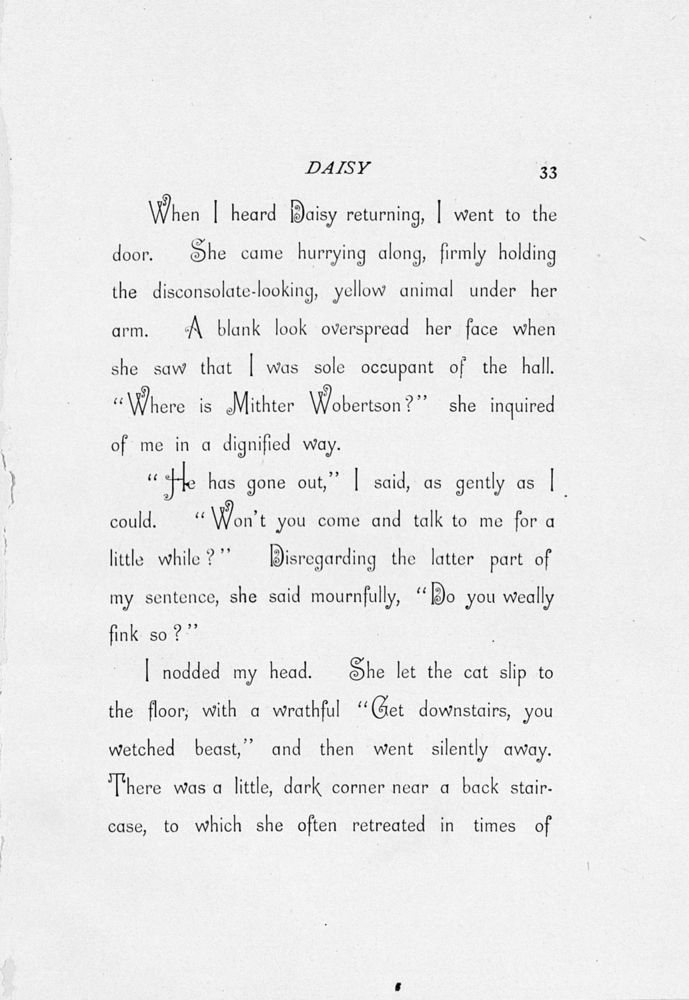 DAISY 33
When I heard Daisy returning, I went to the
door. She came hurrying along, firmly holding
the disconsolate-looking, yellow animal under her
arm. A blank look overspread her face when
she saw that I was sole occupant of the hall.
“Where is Mithter Wobertson?” she inquired
of me in a dignified way.
“He has gone out,” I said, as gently as I
could. “Won’t you come and talk to me for a
little while?” Disregarding the latter part of
my sentence, she said mournfully, “Do you weally
fink so?”
I nodded my head. She let the cat slip to
the floor, with a wrathful “Get downstairs, you
wetched beast,” and then went silently away.
There was a little, dark corner near a back stair-
case, to which she often retreated in times of